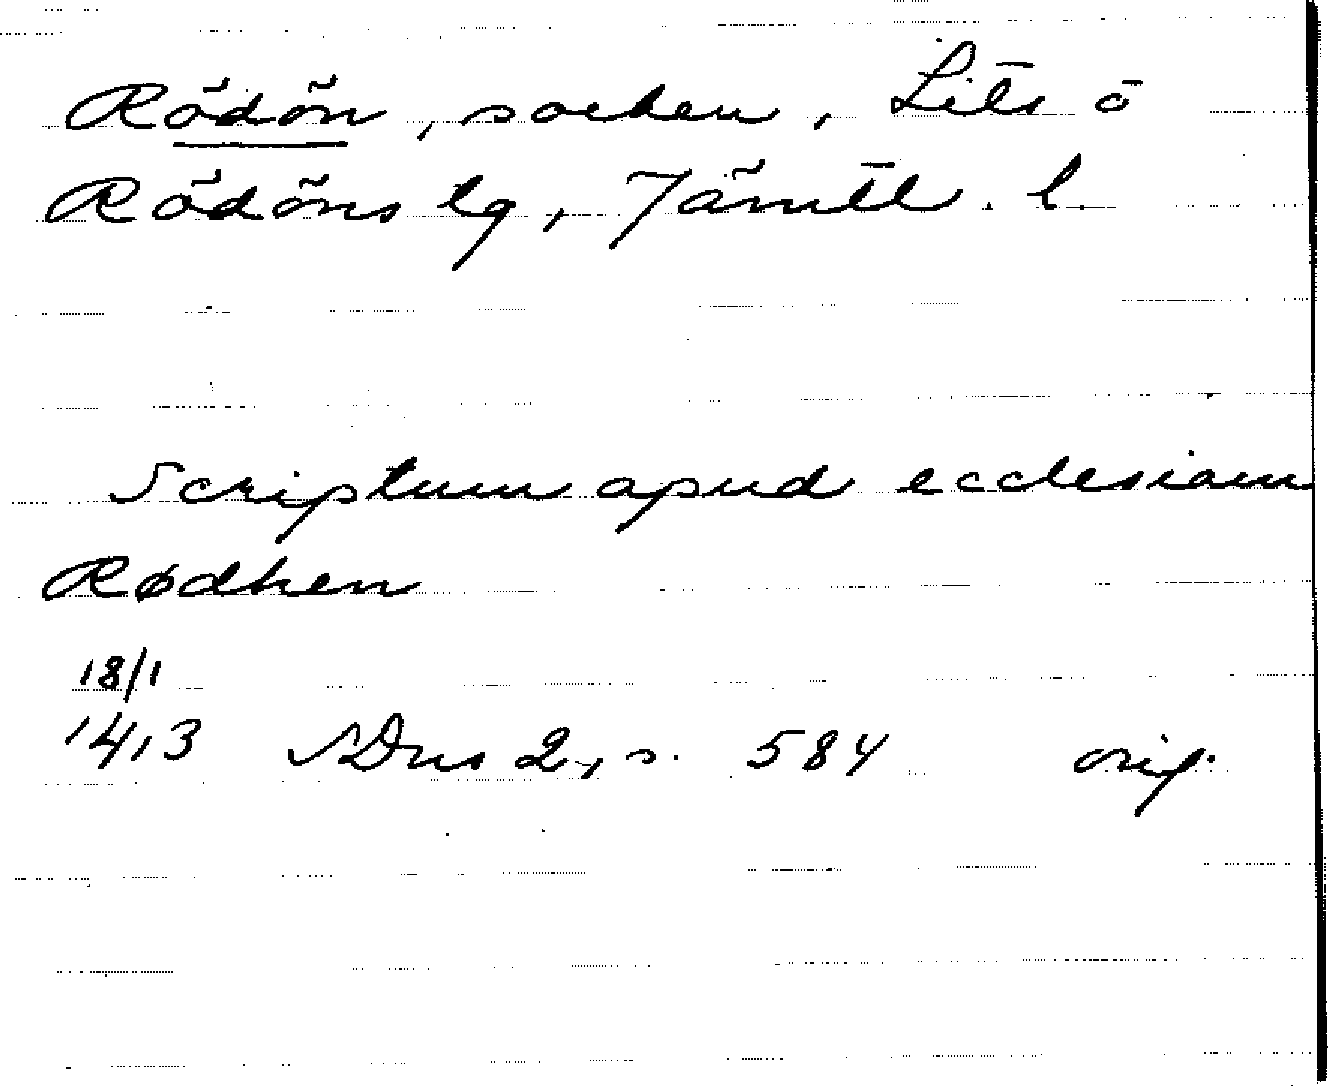 Rödön, socken, Lits o
Rödöns tg, Jämtl. l.
Scriptum apud ecclesiam
Rødhen
18/1
1413 SDns 2, s. 584 orig.